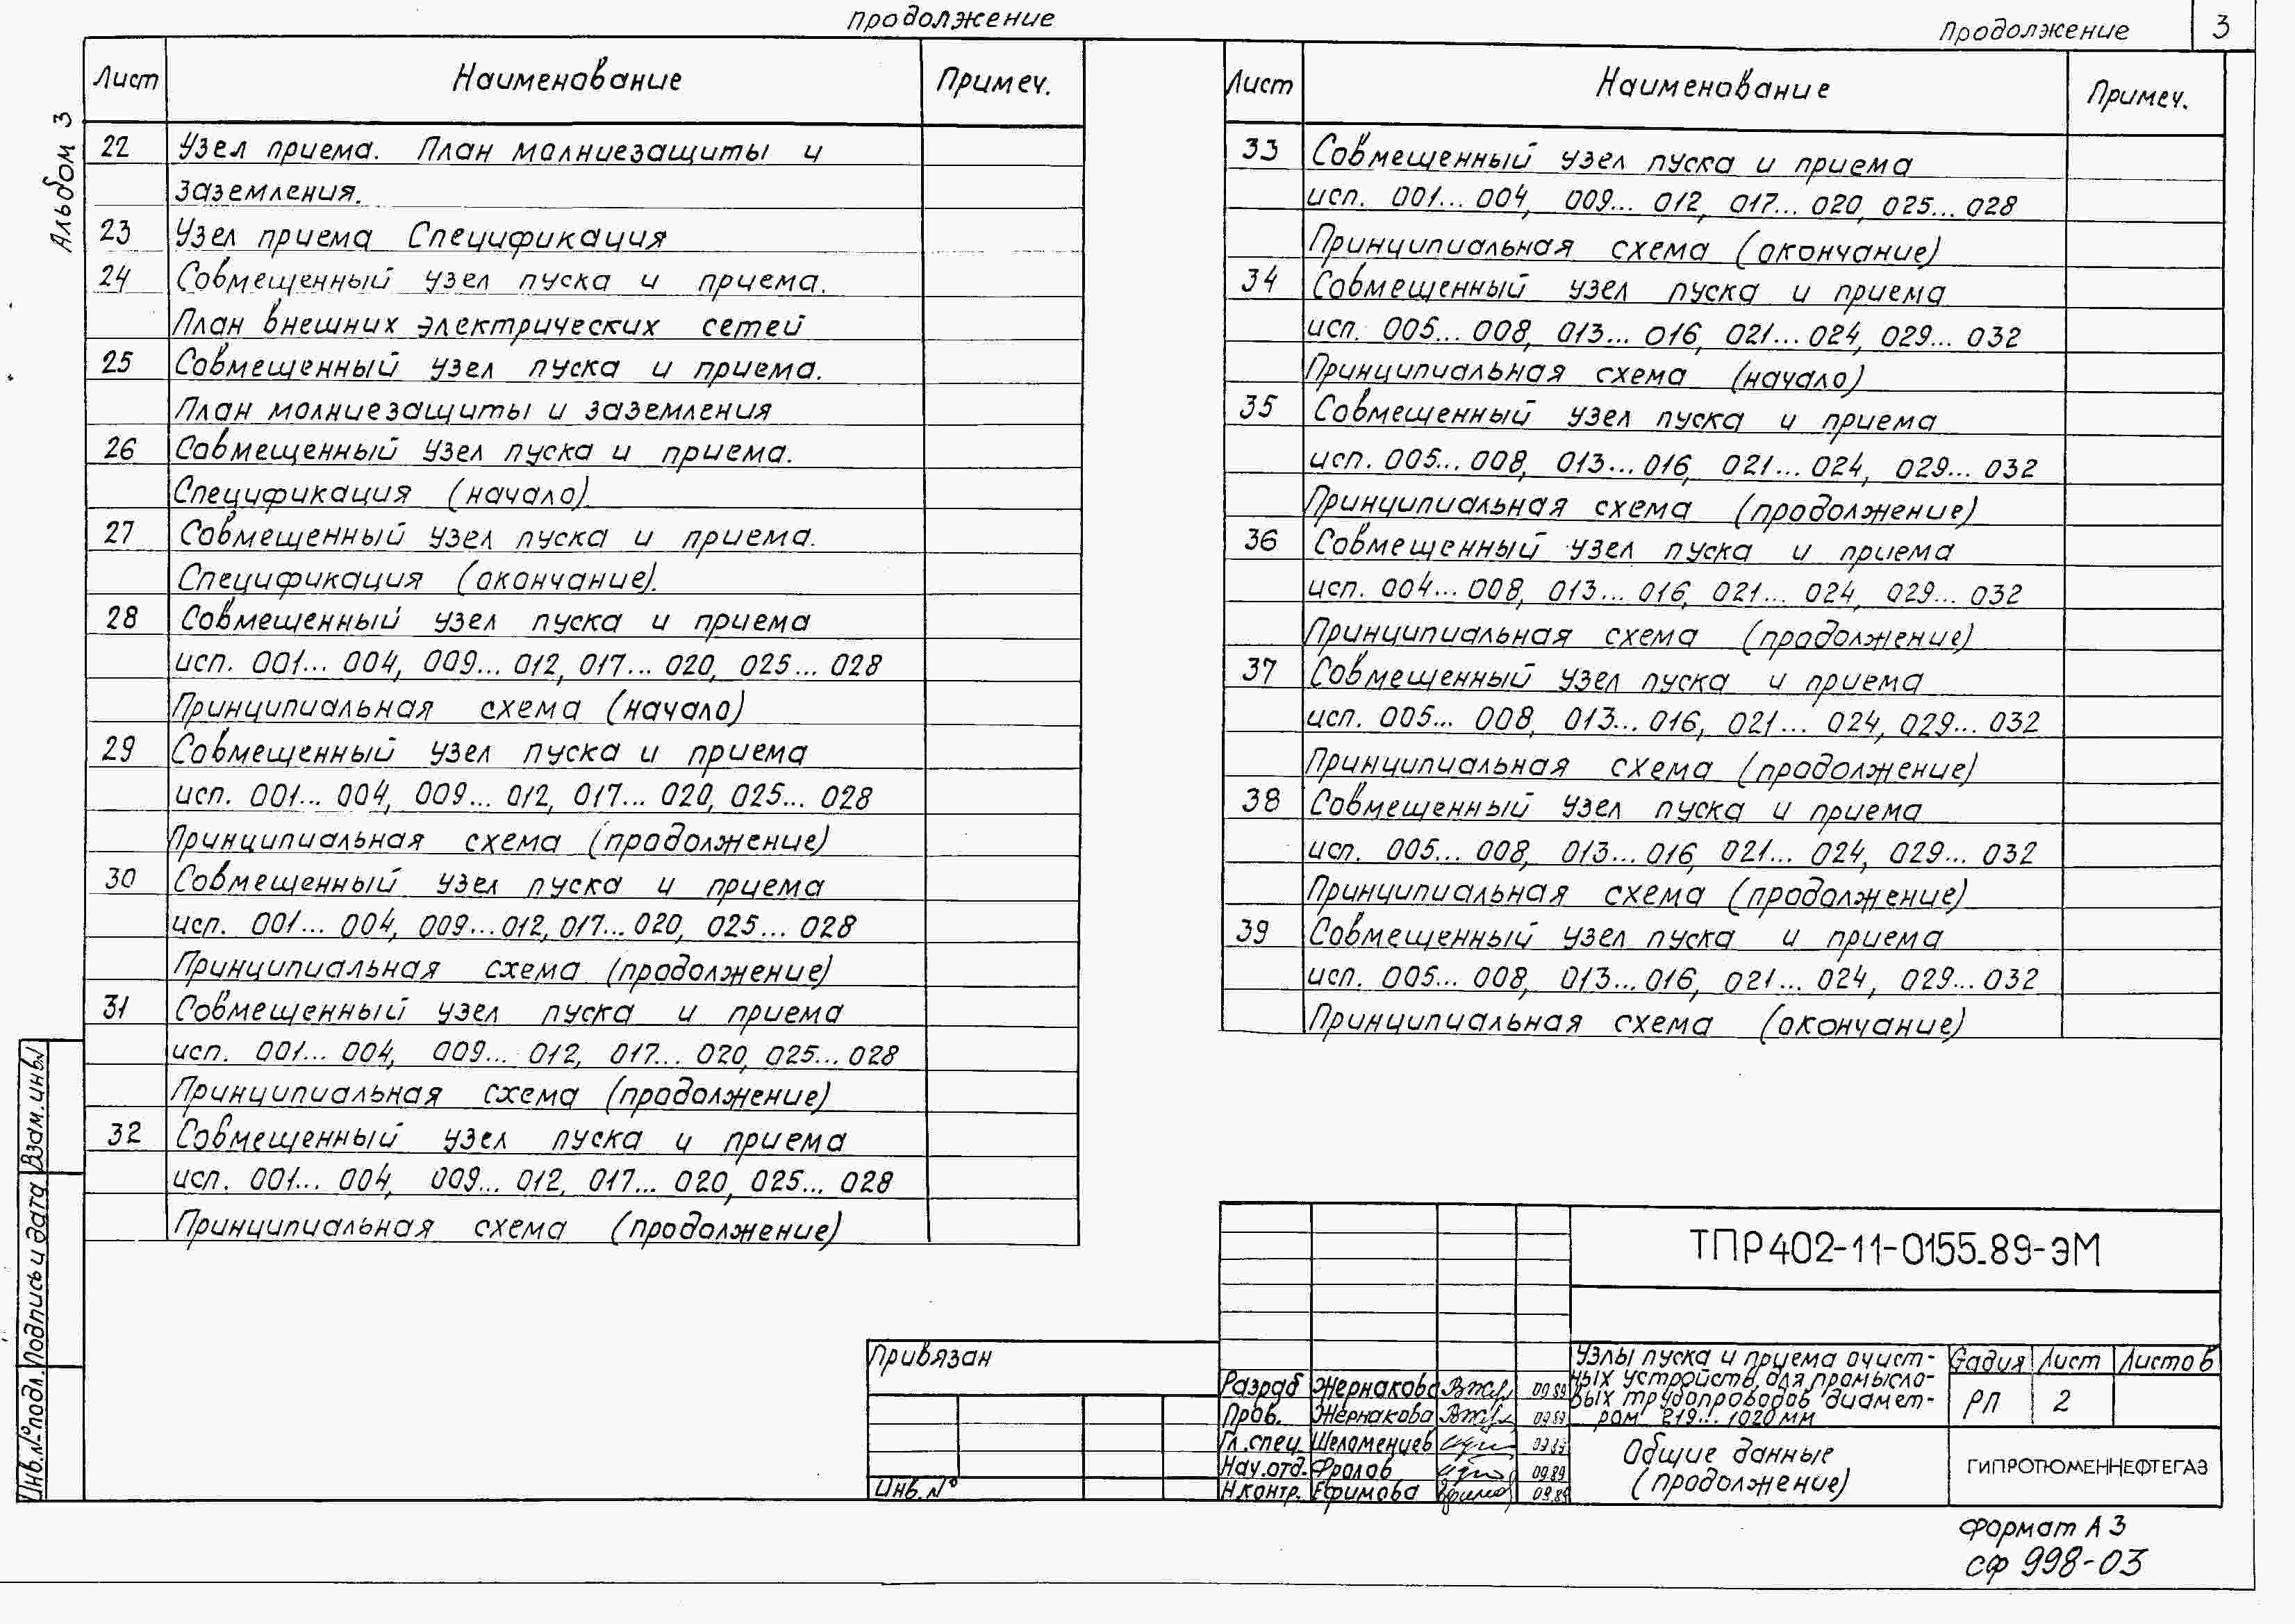 продолжение
Альбом 3
Лист Наименование Примеч.
22 Узел приема. План молниезащиты и
заземления.
23 Узел приема Спецификация
24 Совмещенный узел пуска и приема.
План внешних электрических сетей
25 Совмещенный узел пуска и приема.
План молниезащиты и заземления
26 Совмещенный узел пуска и приема.
Спецификация (начало)
27 Совмещенный узел пуска и приема.
Спецификация (окончание).
28 Совмещенный узел пуска и приема
исп. 001... 004, 009... 012, 017... 020, 025... 028
Принципиальная схема (начало)
29 Совмещенный узел пуска и приема
исп. 001... 004, 009... 012, 017... 020, 025... 028
Принципиальная схема (продолжение)
30 Совмещенный узел пуска и приема
исп. 001... 004, 009...012, 017... 020, 025... 028
Принципиальная схема (продолжение)
31 Совмещенный узел пуска и приема
исп. 001... 004, 009... 012, 017... 020, 025... 028
Принципиальная схема (продолжение)
32 Совмещенный узел пуска и приема
исп. 001... 004, 009... 012, 017... 020, 025... 028
Принципиальная схема (продолжение)
Продолжение 3
Лист Наименование Примеч.
33 Совмещенный узел пуска и приема
исп. 001... 004, 009... 012, 017... 020, 025... 028
Принципиальная схема (окончание)
34 Совмещенный узел пуска и приема
исп. 005... 008, 013... 016, 021... 024, 029... 032
Принципиальная схема (начало)
35 Совмещенный узел пуска и приема
исп. 005... 008, 013...016, 021... 024, 029... 032
Принципиальная схема (продолжение)
36 Совмещенный узел пуска и приема
исп. 004... 008, 013... 016, 021... 024, 029... 032
Принципиальная схема (продолжение)
37 Совмещенный узел пуска и приема
исп. 005... 008, 013... 016, 021... 024, 029... 032
Принципиальная схема (продолжение)
38 Совмещенный узел пуска и приема
исп. 005... 008, 013...016, 021... 024, 029... 032
Принципиальная схема (продолжение)
39 Совмещенный узел пуска и приема
исп. 005... 008, 013...016, 021... 024, 029... 032
Принципиальная схема (окончание)
Взам.инв№
Подпись и дата
Инв.№подл.
Привязан
Инв.№
ТПР402-11-0155.89-ЭМ
Разраб Жернакова 09.89
Пров. Жернакова 09.89
Гл.спец. Шеломенцев
Нач.отд. Фролов 09.89
Н.контр. Ефимова 09.89
Узлы пуска и приема очист-
ных устройств для промысло-
вых трубопроводов диамет-
ром 219... 1020 мм
Стадия Лист Листов
РП 2
Общие данные
(продолжение)
ГИПРОТЮМЕННЕФТЕГАЗ
Формат А3
сф 998-03